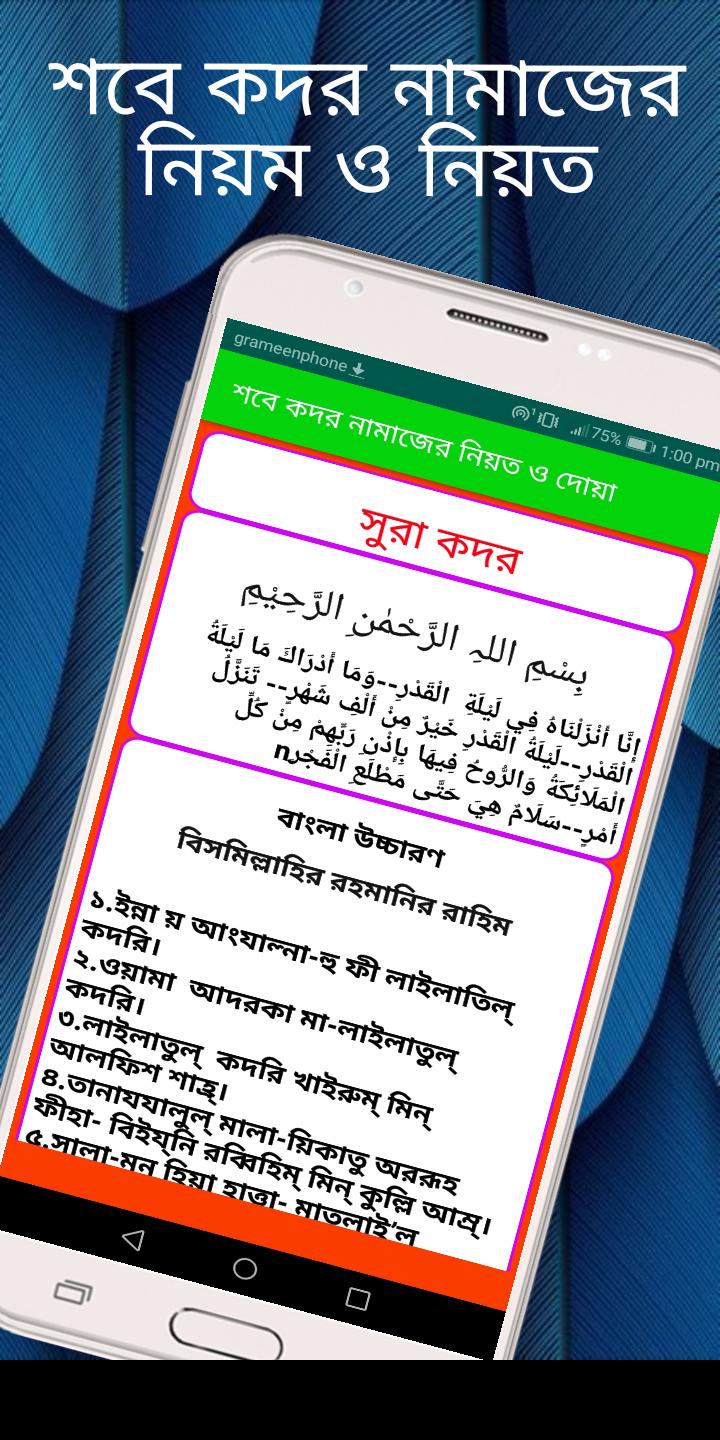 শবে কদর নামাজের
নিয়ম ও নিয়ত
grameenphone
75% 1:00 pm
শবে কদর নামাজের নিয়ত ও দোয়া
সুরা কদর
بِسْمِ اللہِ الرَّحْمٰنِ الرَّحِيْمِ
إِنَّا أَنْزَلْنَاهُ فِي لَيْلَةِ الْقَدْرِ--وَمَا أَدْرَاكَ مَا لَيْلَةُ
الْقَدْرِ--لَيْلَةُ الْقَدْرِ خَيْرٌ مِنْ أَلْفِ شَهْرٍ-- تَنَزَّلُ
الْمَلَائِكَةُ وَالرُّوحُ فِيهَا بِإِذْنِ رَبِّهِمْ مِنْ كُلِّ
أَمْرٍ--سَلَامٌ هِيَ حَتَّى مَطْلَعِ الْفَجْرِn
বাংলা উচ্চারণ
বিসমিল্লাহির রহমানির রাহিম
১.ইন্না য় আংযাল্না-হু ফী লাইলাতিল্
কদরি।
২.ওয়ামা আদরকা মা-লাইলাতুল্
কদরি।
৩.লাইলাতুল্ কদরি খাইরুম্ মিন্
আলফিশ শাহ্র্।
৪.তানাযযালুল্ মালা-য়িকাতু অররূহ
ফীহা- বিইয্নি রব্বিহিম্ মিন্ কুল্লি আম্র্।
৫.সালা-মুন হিয়া হাত্তা- মাতলাই'ল